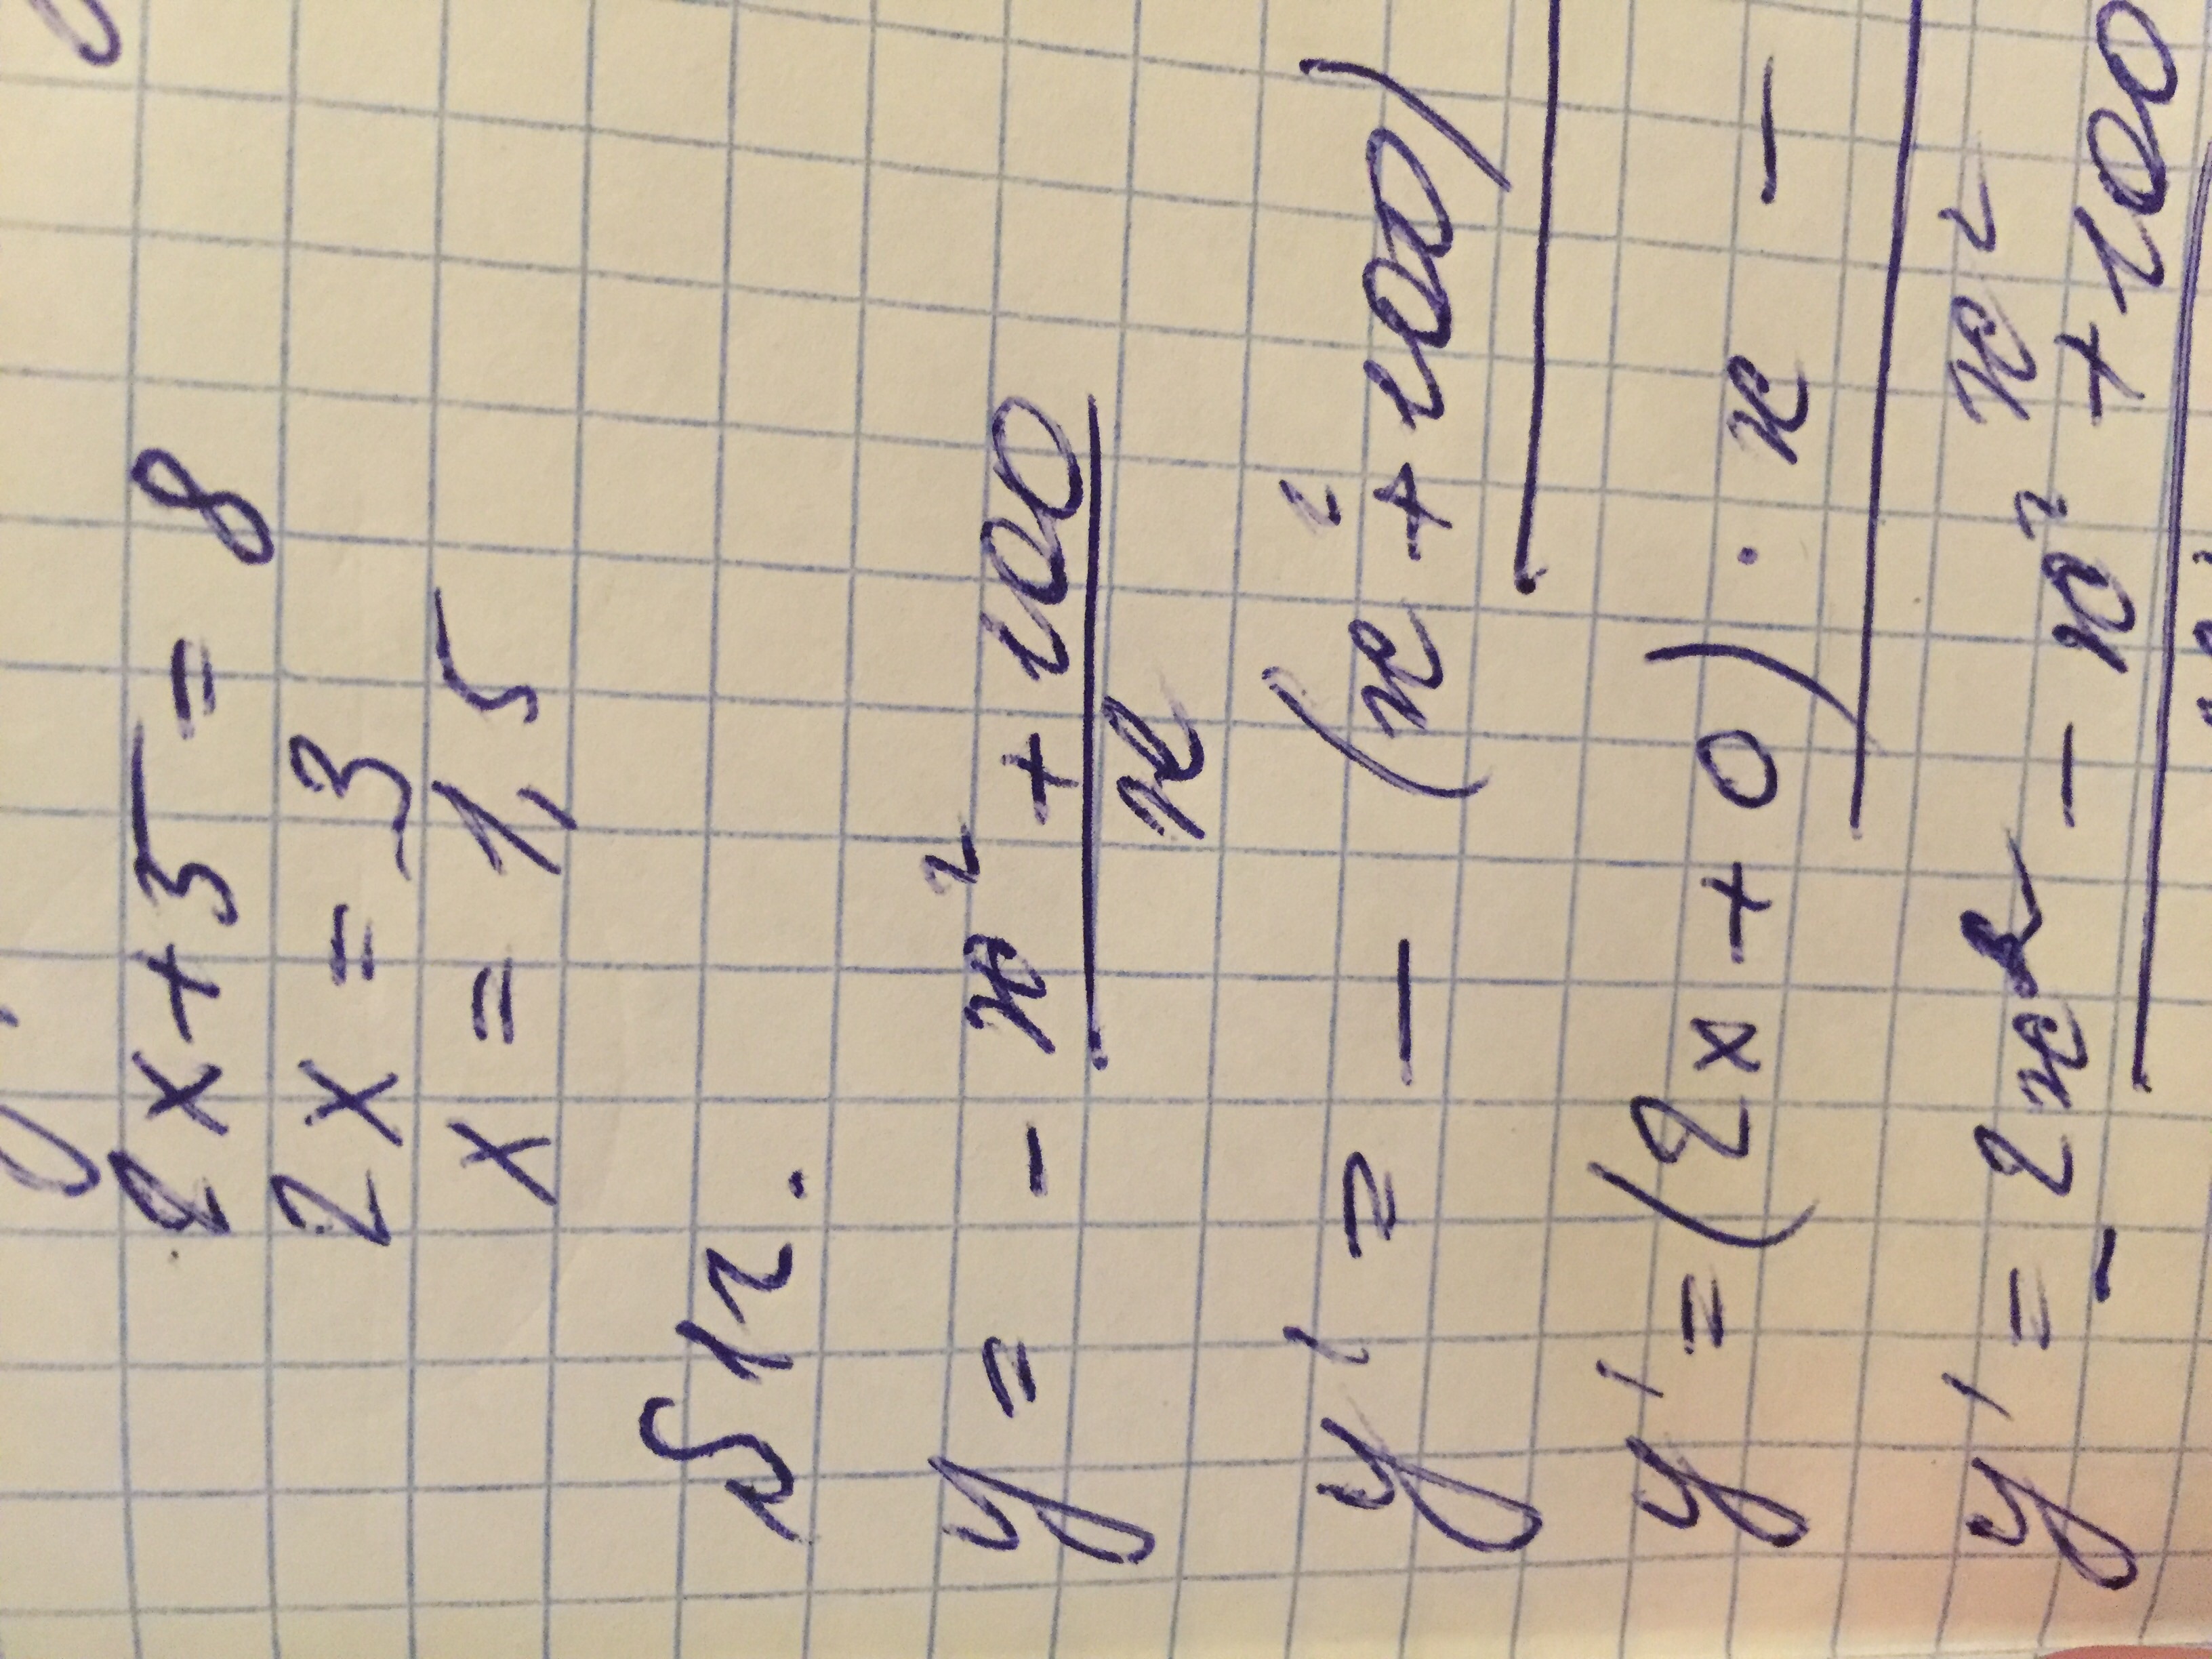 2x+5 = 8
2x = 3
x = 1,5
№12.
y = - x² + 100
x
y' = - (x² + 100)
y' = (2x + 0) · x -
x²
y' = - 2x - x² + 100